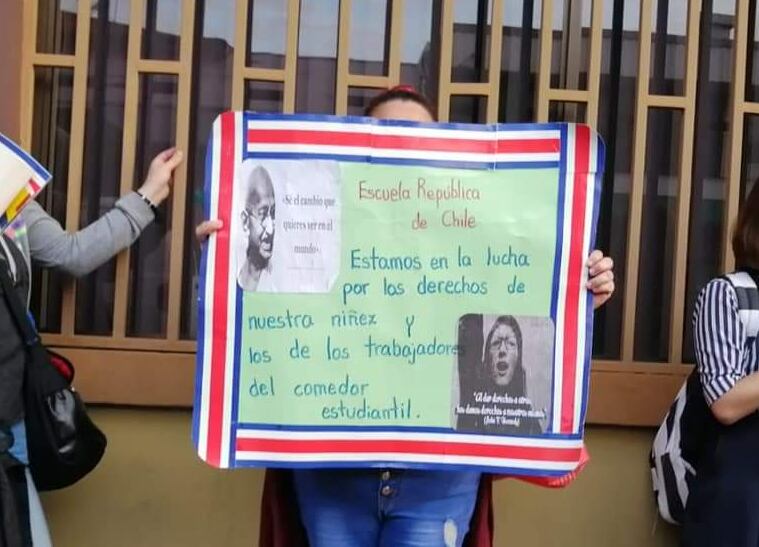 Escuela República
de Chile
«Sé el cambio que
quieres ver en el
mundo».
Estamos en la lucha
por los derechos de
nuestra niñez y
los de los trabajadores
del comedor
estudiantil.
"Al dar derechos a otros,
nos damos derechos a nosotros mismos"
(John F. Kennedy)